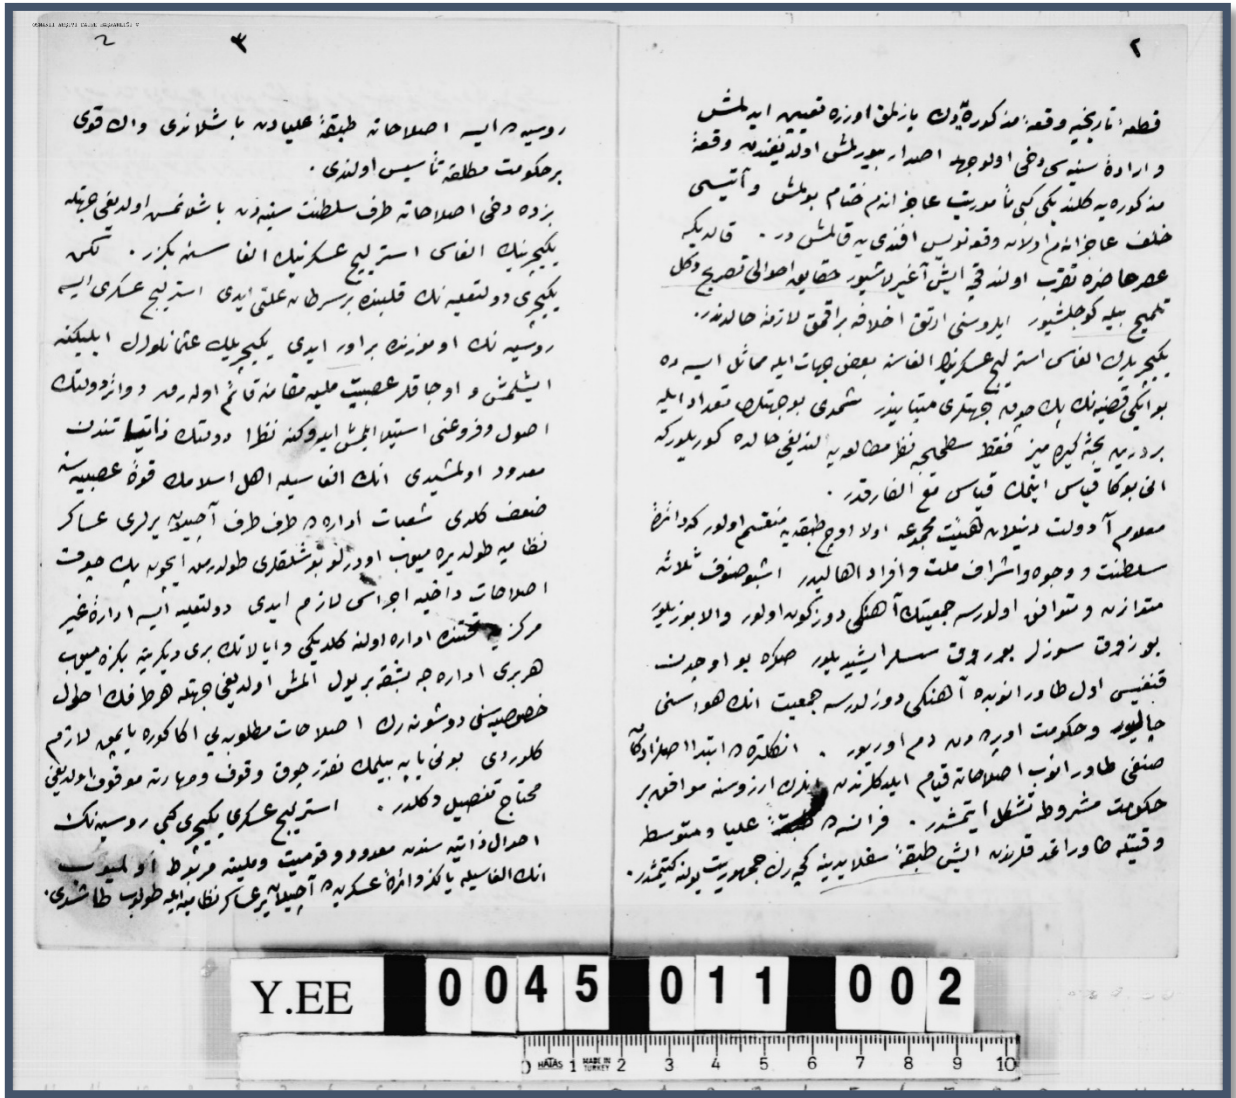 ٢
قطعهٔ تاريخيه وقعهٔ مذكوره‌دن يازلمق اوزره تعيين ايدلمش
و ارادهٔ سنيه‌سى دخى اولوجهله اصدار بيورلمش اولديغندن وقعهٔ
مذكوره‌يه كلنديكى كبى مأموريت عاجزانه‌م ختام بولمش و آتيسى
خلف عاجزانه‌م اولان وقعه‌نويس افندى‌يه قالمش در . قالديكه
عصر حاضره تقرب اولندقجه ايش آغيرلاشيور حقايق احوالى تصريح دكل
تلميح بيله كوجلشيور ايلروسنى ارتق اخلافه براقمق لازمهٔ حالدندر.
يكيچريلرك الغاسى استرليچ عسكرينك الغاسنه بعض جهات ايله مماثل ايسه ده
بو ايكى قضيه‌نك پك چوق جهتلرى متبايندر شمدى بو جهتلرى تعداد ايله
بر درين بحثه كيره ميز فقط سطحيجه نظر مطالعه‌يه النديغى حالده كوريلوركه
انى بوكا قياس ايتمك قياس مع الفارقدر .
معلوم آ دولت دينلان هيئت مجموعه اولا اوچ طبقه‌يه منقسم اولور كه دائرهٔ
سلطنت و وجوه و اشراف ملت و افراد اهاليدر اشبو صنوف ثلاثه
متوازن و متوافق اولورسه جمعيتك آهنكى دوزكون اولور والا بوزيلور
بوزوق سوزلر بوزوق سسلر ايشيديلور صكره بو اوچدن
قنغيسى اول طاورانوبده آهنكى دوزلدرسه جمعيت انك هواسنى
چاليور و حكومت اوزره دن دم اوريور . انكلتره ده ابتدا اصلزادكان
صنفى طاورانوب اصلاحاته قيام ايلدكلرندن انلرك ارزوسنه موافق بر
حكومت مشروطه تشكل ايتمشدر . فرانسه ده طبقهٔ عليا و متوسطه
وقتيله طاورانمدقلرندن ايش طبقهٔ سفلايه كچه‌رك جمهوريت يولنه كيتمشدر.
٣
روسيه ده ايسه اصلاحاته طبقهٔ عليادن باشلاندى و اك قوى
بر حكومت مطلقه تأسيس اولندى .
بزده دخى اصلاحاته طرف سلطنت سنيه‌دن باشلانمش اولديغى جهتله
يكيچرينك الغاسى استرليچ عسكرينك الغاسنه بكزر . لكن
يكيچرى دولتعليه نك قلبنده بر سرطان علتى ايدى استرليچ عسكرى ايسه
روسيه نك اوموزنده بر اور ايدى يكيچريلك عثمانلولرك ايليكنه
ايشلمش و اوجاقلر عصبيت مليه مقامنه قائم اوله‌رق دوائر دولتك
اصول و فروعنى استيلا ايلمش ايدوكنه نظرا دولتك ذاتياتندن
معدود اولمشيدى انك الغاسيله اهل اسلامك قوهٔ عصبيه‌سنه
ضعف كلدى شعبات اداره ده طرف طرف آچيلان يرلرى عساكر
نظاميه طولديره ميوب اوزرلو بوشلقلرى طولدرمق ايچون پك چوق
اصلاحات داخليه اجراسى لازم ايدى دولتعليه ايسه ادارهٔ غير
مركزيه تحتنده اداره اولنه كلديكى و ايالاتك برى ديكرينه بكزه ميوب
هر برى اداره جه بشقه بر يول المش اولديغى جهتله هر طرفك احوال
خصوصيه‌سنى دوشونه‌رك اصلاحات مطلوبه‌يى اكا كوره ياپمق لازم
كلوردى بونى ياپه بيلمك نقدر چوق وقوف و مهارته موقوف اولديغى
محتاج تفصيل دكلدر . استرليچ عسكرى يكيچرى كبى روسيه نك
احوال ذاتيه سندن معدود و قوميت و مليته مربوط اولميوب
انك الغاسيله يالكز دائرهٔ عسكريه ده آچيلان ير عساكر نظاميه ايله طولوب طاشدى.
Y.EE 0045 011 002
0 HATAS 1 MADE IN TURKEY 2 3 4 5 6 7 8 9 10